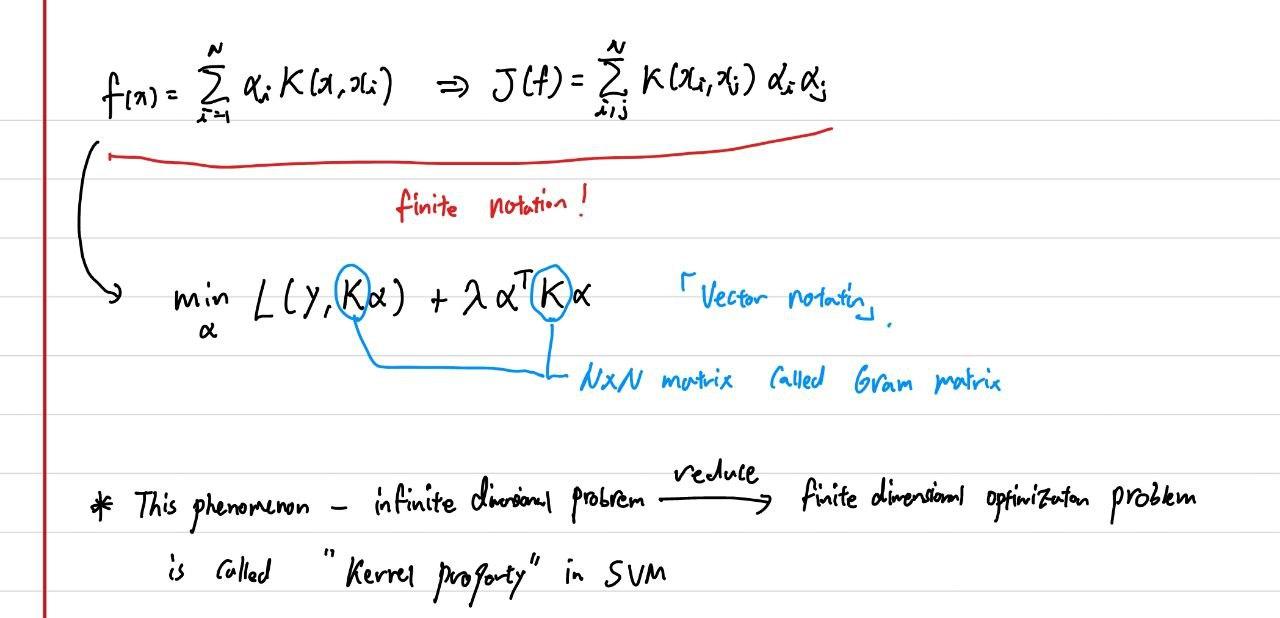 f(x) = ∑_{i=1}^{N} α_i K(x, x_i) ⇒ J(f) = ∑_{i,j}^{N} K(x_i, x_j) α_i α_j
finite notation!
min_α L(y, Kα) + λ α^T K α 「Vector notatin」.
N×N matrix called Gram matrix
* This phenomenon – infinite dimensional probrem reduce → finite dimensional optimizaton problem
is called "Kernel property" in SVM